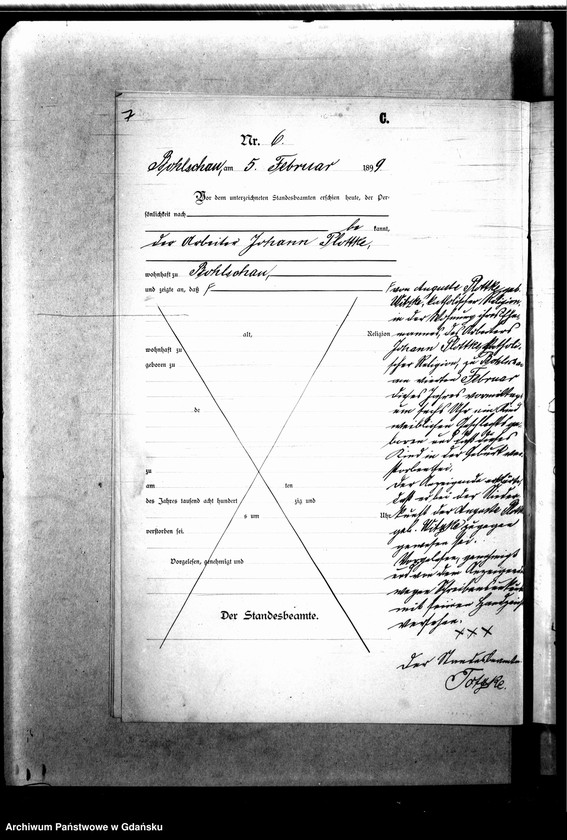 7
C.
Nr. 6.
Bohlschau, am 5. Februar 1899
Vor dem unterzeichneten Standesbeamten erschien heute, der Per-
sönlichkeit nach
be kannt,
der Arbeiter Johann Plottke,
wohnhaft zu Bohlschau,
und zeigte an, daß
alt, Religion
wohnhaft zu
geboren zu
de
zu
am ten
des Jahres tausend acht hundert zig und
s um Uhr
verstorben sei.
Vorgelesen, genehmigt und
Der Standesbeamte.
von Auguste Plottke, geb.
Witzke, katholischer Religion,
in der Wohnung ihres Ehe-
mannes, des Arbeiters
Johann Plottke katholi-
scher Religion, zu Bohlschau
am vierten Februar
dieses Jahres vormittags
um sechs Uhr ein Kind
weiblichen Geschlechts ge-
boren und daß dieses
Kind in der Geburt ver-
storben sei.
Der Anzeigende erklärte,
daß er bei der Nieder-
kunft der Auguste Plottke
geb. Witzke zugegen
gewesen sei.
Vorgelesen, genehmigt
und von dem Anzeigenden
wegen Schreibensunkunde
mit seinen Handzeichen
versehen.
+++
Der Standesbeamte
Archiwum Państwowe w Gdańsku